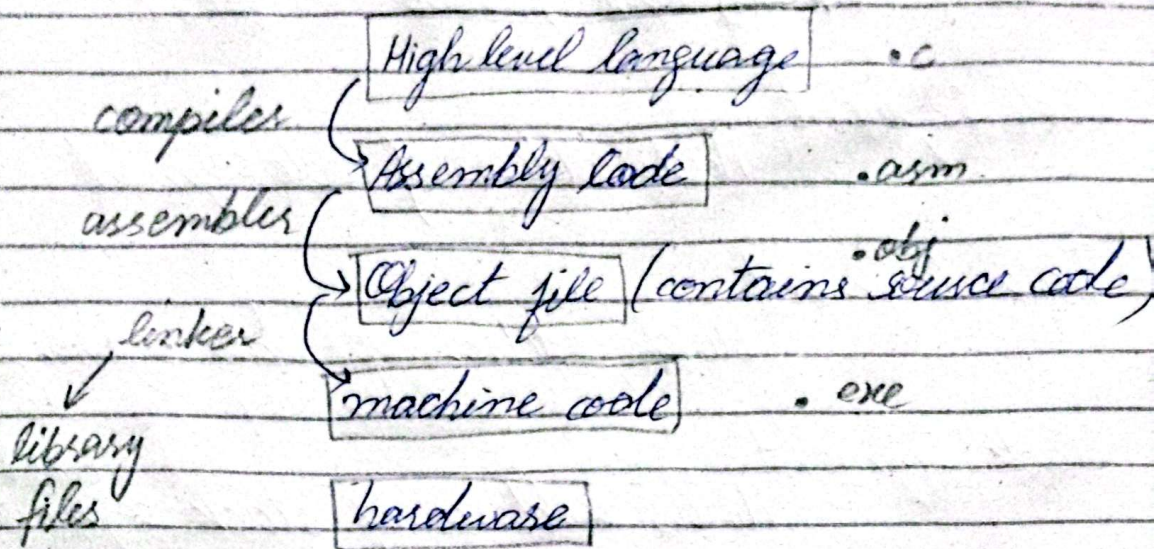 High level language .c
compiler
Assembly Code .asm
assembler
.obj
Object file (contains source code)
linker
machine code . exe
library
files
hardware